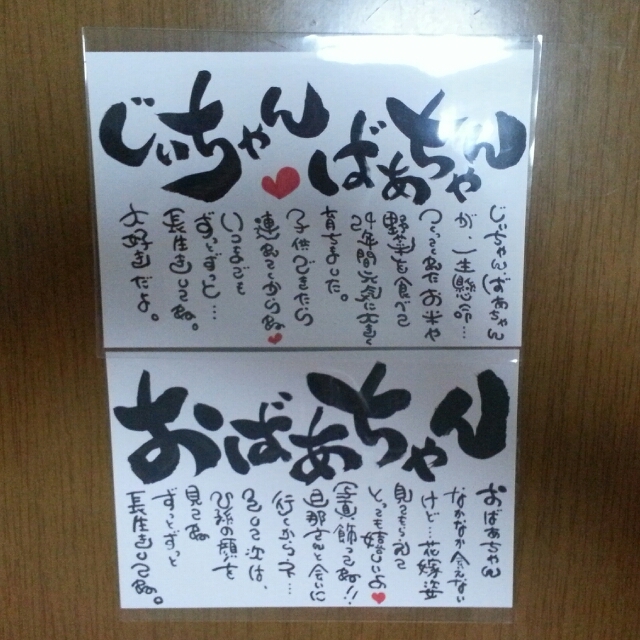 じいちゃん
ばあちゃん
じいちゃん、ばあちゃん
が、一生懸命…
つくってくれたお米や
野菜を食べて
年間元気に大きく
育ちました。
子供できたら
連れてくからね
いつまでも
ずっとずっと…
長生きしてね。
大好きだよ。
おばあちゃん
おばあちゃん
なかなか会えない
けど…花嫁姿
見てもらえて
とっても嬉しいよ
写真飾ってね!!
旦那さんと会いに
行くからネ…
そして次は、
ひ孫の顔を
見てね
ずっとずっと
長生きしてね。